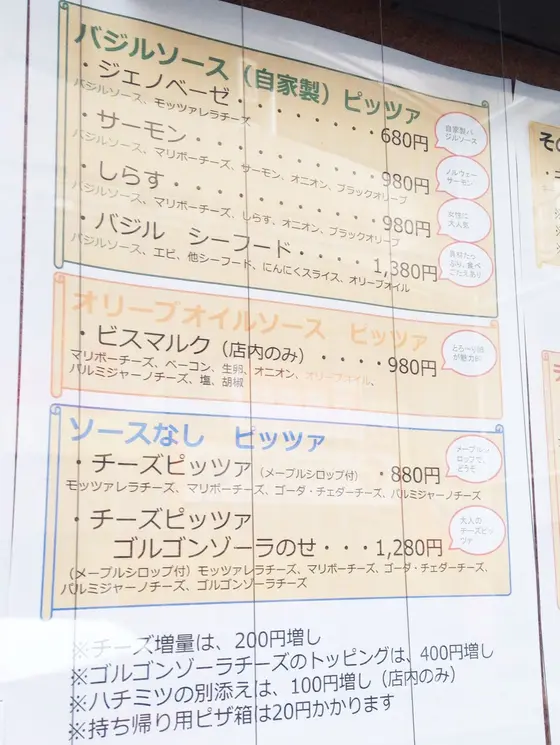 バジルソース（自家製）ピッツァ
・ジェノベーゼ・・・・・・・・680円
バジルソース、モッツァレラチーズ
自家製バ
ジルソース
・サーモン・・・・・・・・・・980円
バジルソース、マリボーチーズ、サーモン、オニオン、ブラックオリーブ
ノルウェー
サーモン
・しらす・・・・・・・・・・・980円
バジルソース、マリボーチーズ、しらす、オニオン、ブラックオリーブ
女性に
大人気
・バジル シーフード・・・・1,380円
バジルソース、エビ、他シーフード、にんにくスライス、オリーブオイル
具材たっ
ぷり、食べ
ごたえあり
オリーブオイルソース ピッツァ
・ビスマルク（店内のみ）・・・・980円
マリボーチーズ、ベーコン、生卵、オニオン、オリーブオイル、
パルミジャーノチーズ、塩、胡椒
とろ～り卵
が魅力的
ソースなし ピッツァ
・チーズピッツァ（メープルシロップ付）・880円
モッツァレラチーズ、マリボーチーズ、ゴーダ・チェダーチーズ、パルミジャーノチーズ
メープルシ
ロップで、
どうぞ
・チーズピッツァ
ゴルゴンゾーラのせ・・・1,280円
（メープルシロップ付）モッツァレラチーズ、マリボーチーズ、ゴーダ・チェダーチーズ、
パルミジャーノチーズ、ゴルゴンゾーラチーズ
大人の
チーズピッ
ツァ
※チーズ増量は、200円増し
※ゴルゴンゾーラチーズのトッピングは、400円増し
※ハチミツの別添えは、100円増し（店内のみ）
※持ち帰り用ピザ箱は20円かかります
その